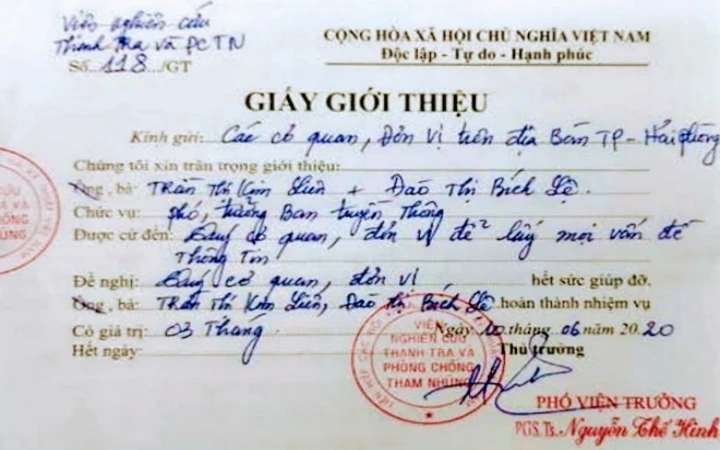 Viện nghiên cứu
Thanh Tra và PCTN
Số 118/GT
CỘNG HÒA XÃ HỘI CHỦ NGHĨA VIỆT NAM
Độc lập - Tự do - Hạnh phúc
GIẤY GIỚI THIỆU
Kính gửi: Các cơ quan, Đơn vị trên địa Bàn TP - Hải phòng
Chúng tôi xin trân trọng giới thiệu:
Ông, bà: Trần Thị Kim Liên + Đào Thị Bích Lệ.
Chức vụ: phó, trưởng Ban truyền Thông
Được cử đến: Quý cơ quan, đơn vị để lấy mọi vấn đề
Thông Tin
Đề nghị: Quý cơ quan, đơn vị hết sức giúp đỡ.
Ông, bà: Trần Thị Kim Liên, Đào Thị Bích Lệ hoàn thành nhiệm vụ
Có giá trị: 03 Tháng Ngày 10 tháng 06 năm 2020
Hết ngày: Thủ trưởng
VIỆN
NGHIÊN CỨU
THANH TRA VÀ
PHÒNG CHỐNG
THAM NHŨNG
PHÓ VIỆN TRƯỞNG
PGS.Ts. Nguyễn Thế Hinh